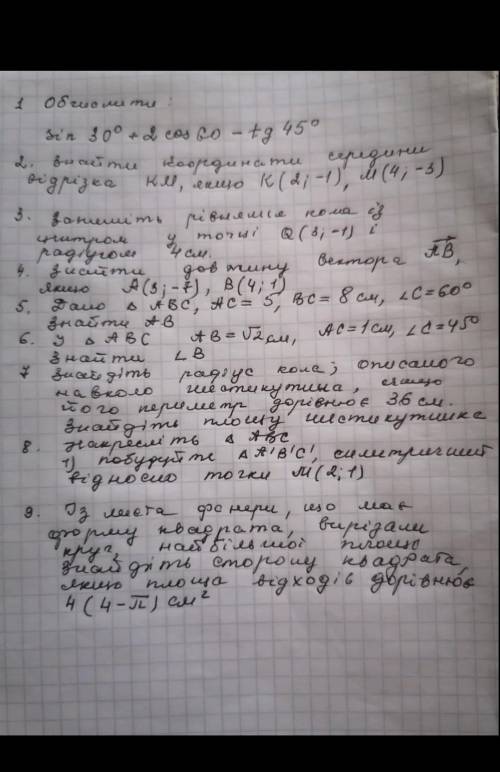 1 Обчислити:
sin 30° + 2 cos 60 - tg 45°
2. знайти координати середини
відрізка KM, якщо K(2; -1), M(4; -3)
3. запишіть рівняння кола із
центром у точці Q(3; -1) і
радіусом 4 см.
4. знайти довжину вектора AB,
якщо A(3; -7), B(4; 1)
5. Дано △ ABC, AC = 5, BC = 8 см, ∠C = 60°
знайти AB
6. У △ ABC AB = √2 см, AC = 1 см, ∠C = 45°
знайти ∠B
7 знайдіть радіус кола, описаного
навколо шестикутника, якщо
його периметр дорівнює 36 см.
знайдіть площу шестикутника
8. накресліть △ ABC
1) побудуйте △ A'B'C', симетричний
відносно точки M(2; 1)
9. Із листа фанери, що має
форму квадрата, вирізали
круг, найбільшої площі
знайдіть сторону квадрата,
якщо площа відходів дорівнює
4(4-π) см²